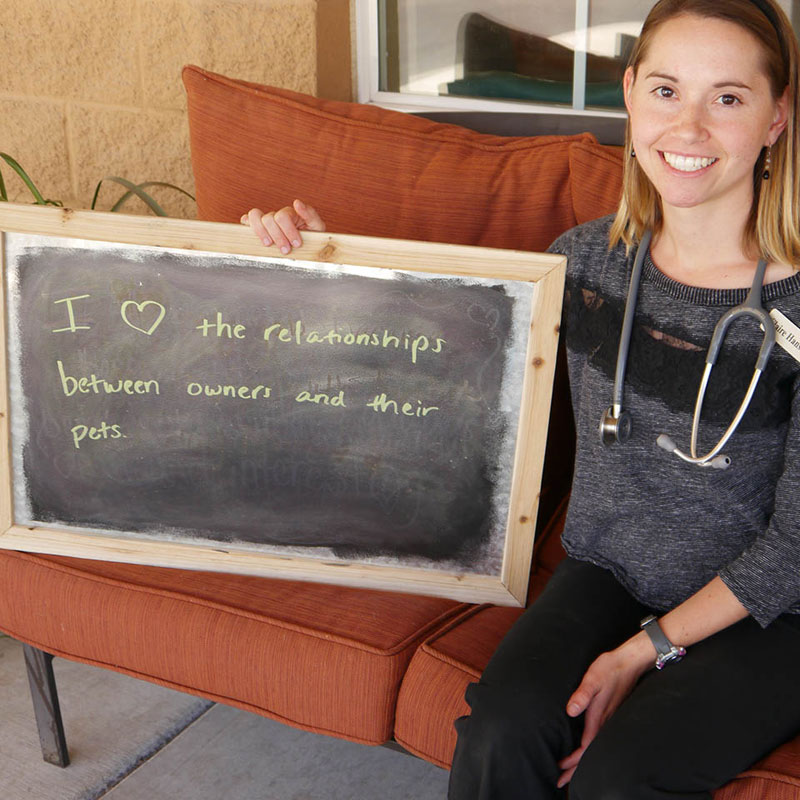 I ♡ the relationships
between owners and their
pets.